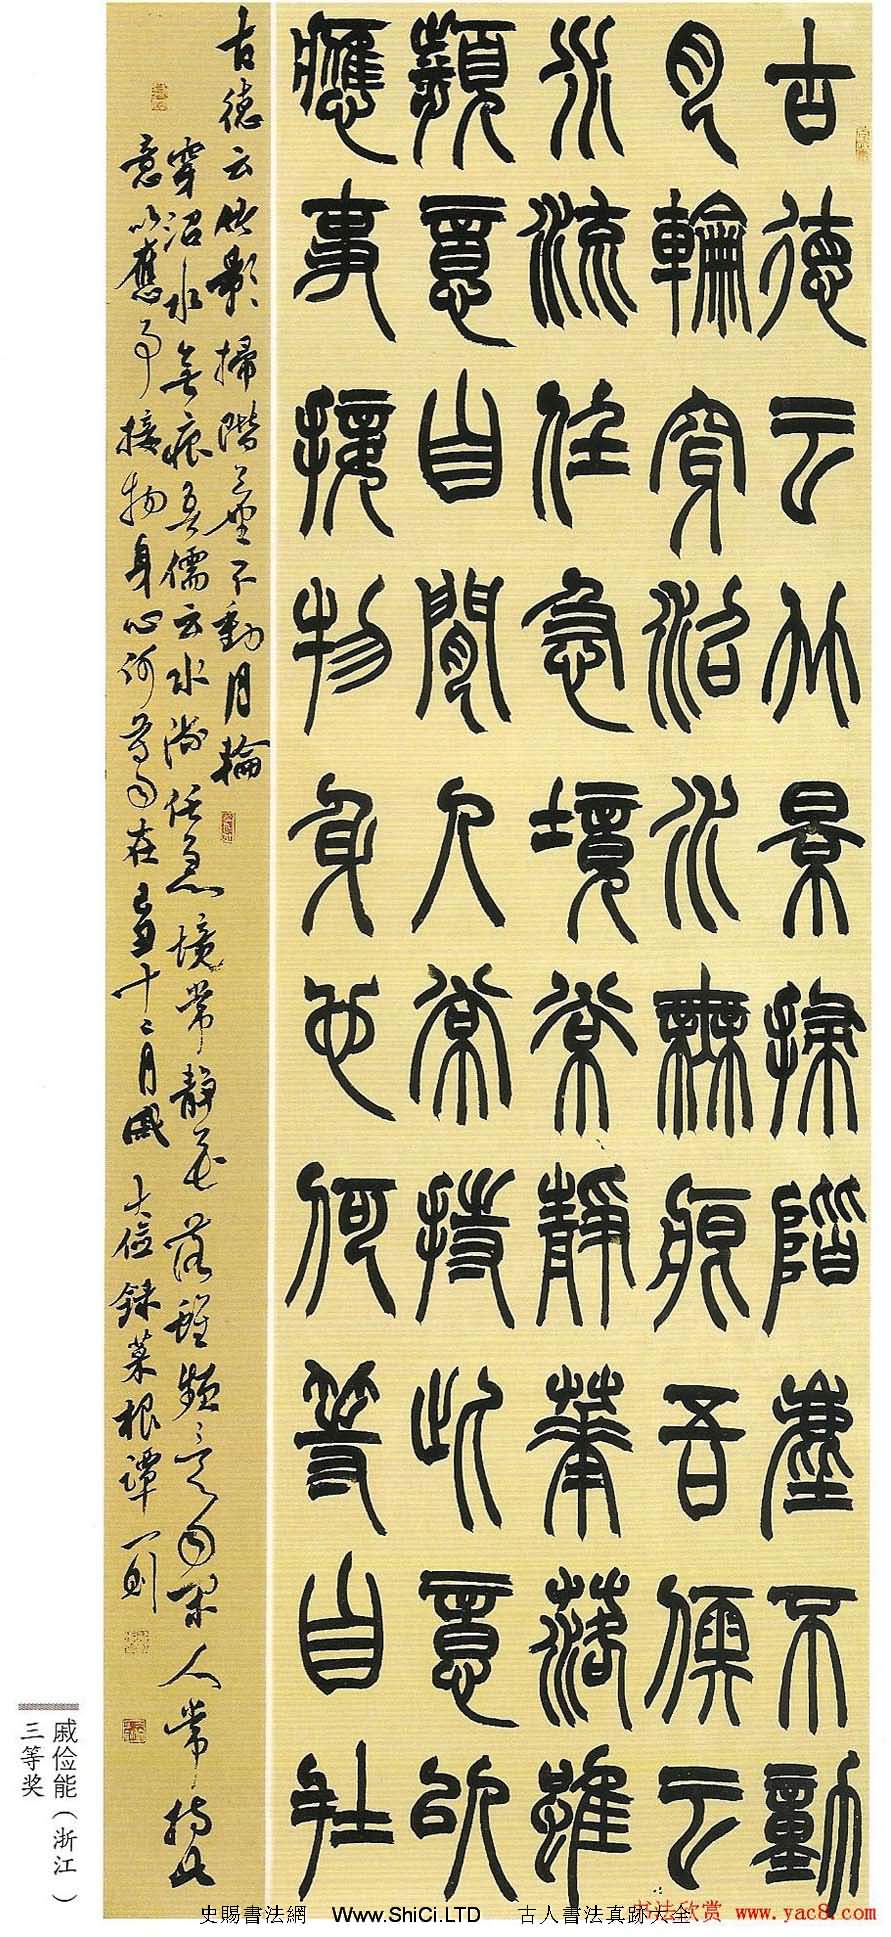 古德云竹景掃階塵不動
月輪穿沼水無痕吾儒云
水流任急境常靜華落雖
頻意自閒人常持此意以
應事接物身心何等自在
古德云竹影掃階塵不動月輪
穿沼水無痕吾儒云水流任急境常靜花落雖頻意自閑人常持此
意以應事接物身心何等自在己丑十二月戚大儉錄菜根譚一則
戚俭能（浙江）
三等奖
史賜書法網 Www.ShiCi.LTD 古人書法真跡大全
书法欣赏 www.yac8.com